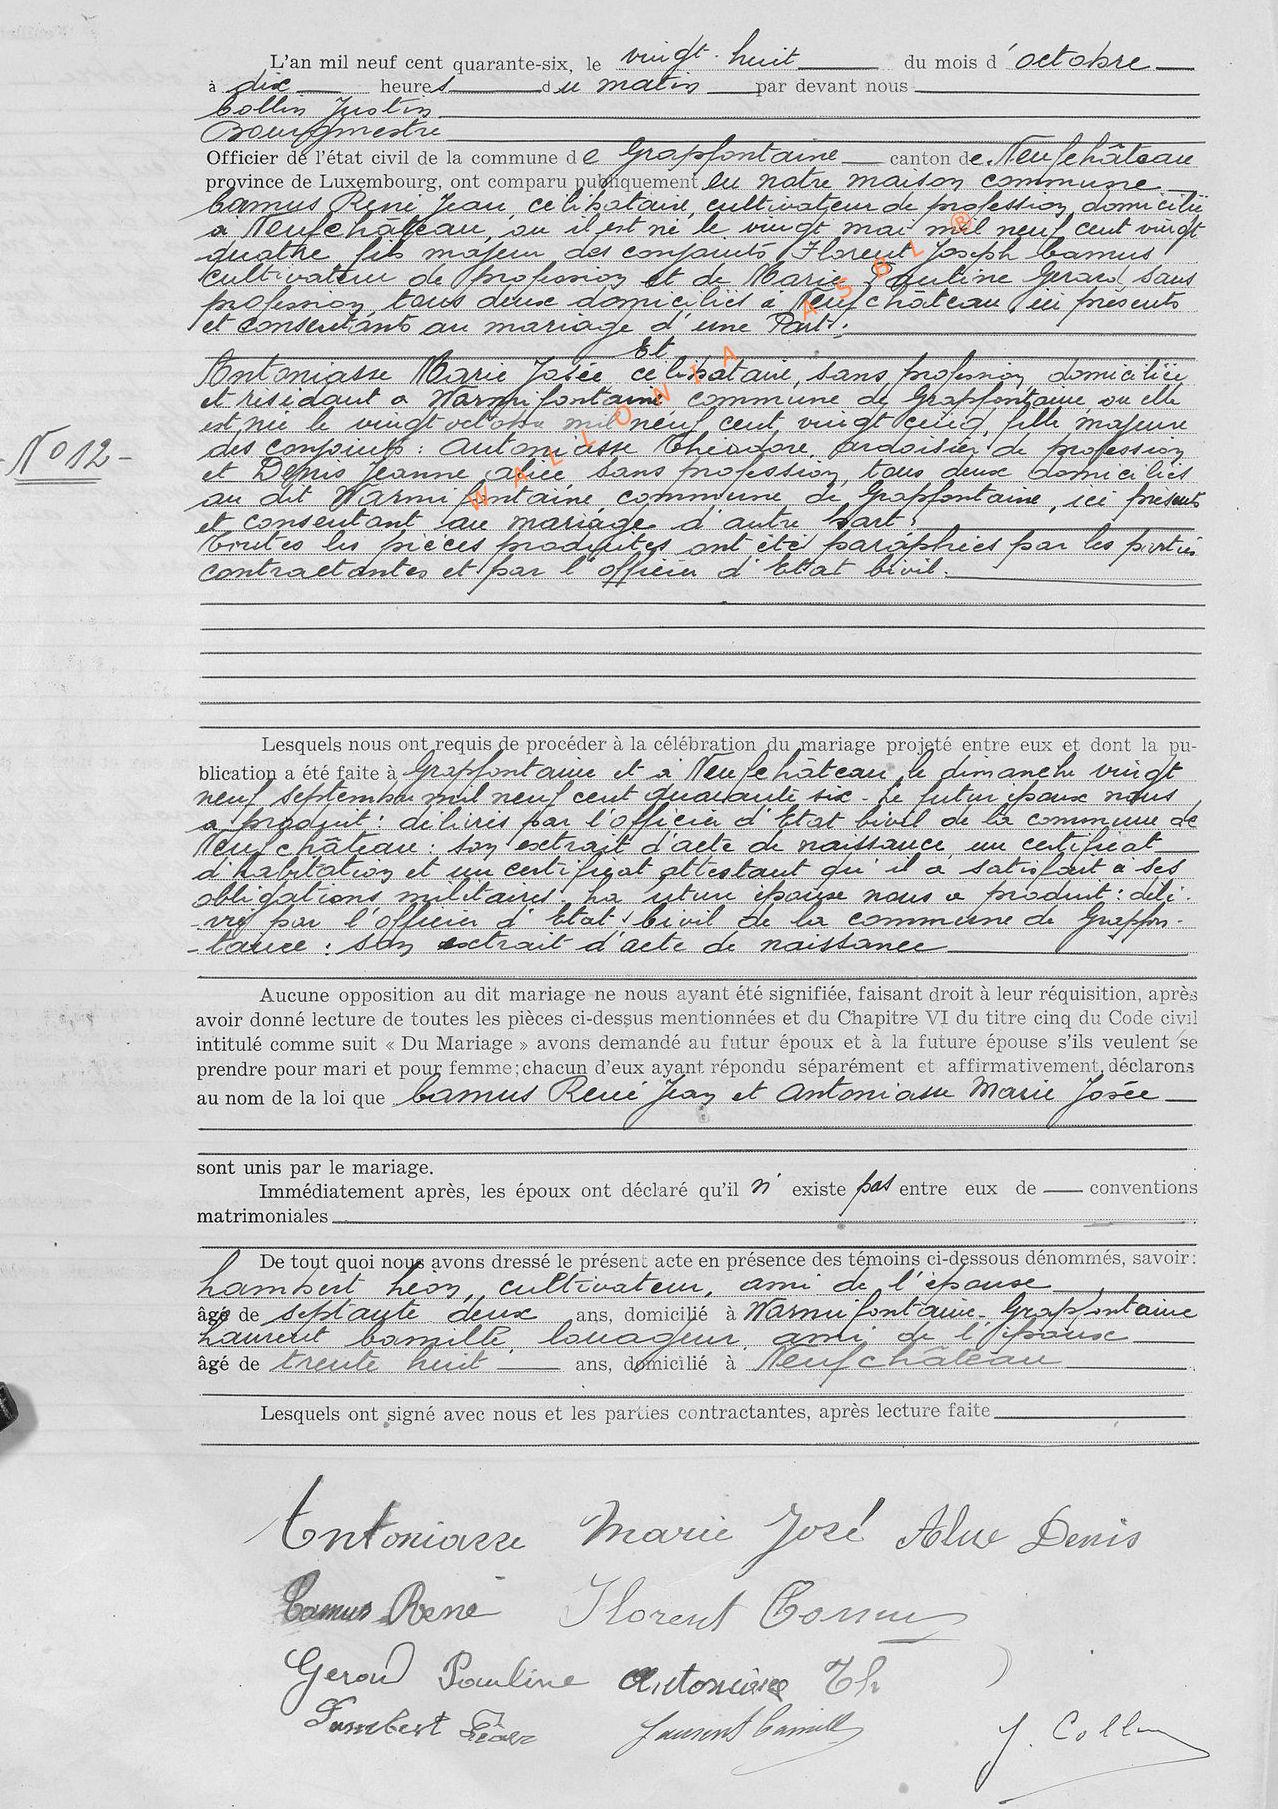 L'an mil neuf cent quarante-six, le vingt-huit du mois d'octobre
à dix heures du matin par devant nous
Collin Justin
Bourgmestre
Officier de l'état civil de la commune de Grapfontaine canton de Neufchâteau
province de Luxembourg, ont comparu publiquement en notre maison commune
Camus René Jean, célibataire, cultivateur de profession, domicilié
a Neufchâteau, ou il est né le vingt mai mil neuf cent vingt
quatre fils majeur des conjoints Florent Joseph Camus
cultivateur de profession et de Marie Pauline Gerard, sans
profession, tous deux domiciliés a Neufchâteau ici présents
et consentants au mariage d'une Part;
Et
Antoniasse Marie Josée célibataire, sans profession domiciliée
et résidant a Warmifontaine commune de Grapfontaine ou elle
est née le vingt octobre mil neuf cent vingt cinq, fille majeure
des conjoints: Antoniasse Théodore, ardoisier de profession
et Denis Jeanne alice sans profession, tous deux domiciliés
au dit Warmifontaine, commune de Grapfontaine, ici présents
et consentant au mariage d'autre Part;
Toutes les pièces produites ont été paraphées par les parties
contractantes et par l'officier d'Etat Civil.
N° 12
WALLONIA ASBL ®
Lesquels nous ont requis de procéder à la célébration du mariage projeté entre eux et dont la pu-
blication a été faite à Grapfontaine et a Neufchâteau le dimanche vingt
neuf septembre mil neuf cent quarante six - Le futur époux nous
a produit: délivrés par l'officier d'Etat Civil de la commune de
Neufchâteau: son extrait d'acte de naissance, un certificat
d'habitation et un certificat attestant qu'il a satisfait a ses
obligations militaires. La future épouse nous a produit: déli-
-vré par l'officier d'Etat Civil de la commune de Grapfon-
-taine: son extrait d'acte de naissance
Aucune opposition au dit mariage ne nous ayant été signifiée, faisant droit à leur réquisition, après
avoir donné lecture de toutes les pièces ci-dessus mentionnées et du Chapitre VI du titre cinq du Code civil
intitulé comme suit « Du Mariage » avons demandé au futur époux et à la future épouse s'ils veulent se
prendre pour mari et pour femme; chacun d'eux ayant répondu séparément et affirmativement, déclarons
au nom de la loi que Camus René Jean et Antoniasse Marie Josée
sont unis par le mariage.
Immédiatement après, les époux ont déclaré qu'il n' existe pas entre eux de conventions
matrimoniales
De tout quoi nous avons dressé le présent acte en présence des témoins ci-dessous dénommés, savoir:
Lambert Léon, cultivateur, ami de l'épouse
âgé de septante deux ans, domicilié à Warmifontaine-Grapfontaine
Laurent Camille, louageur, ami de l'époux
âgé de trente huit ans, domicilié à Neufchâteau
Lesquels ont signé avec nous et les parties contractantes, après lecture faite
Antoniasse Marie José Alice Denis
Camus René Florent Camus
Gerard Pauline Antoniasse Th
Lambert Léon Laurent Camille J. Collin